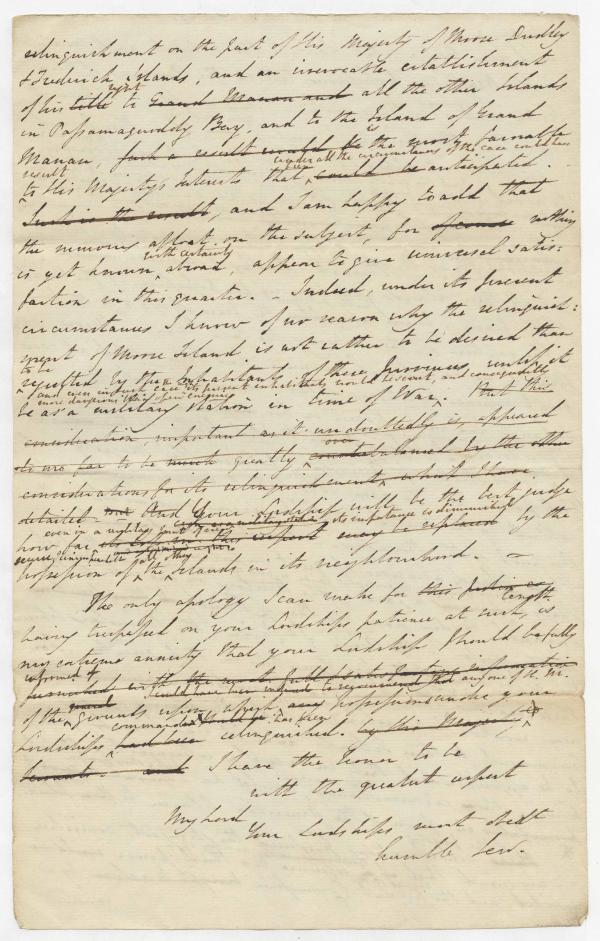 relinquishment on the part of His Majesty of Moose Dudley
& Frederick Islands, and an irrevocable establishment
right
of his title to Grand Manan and all the other Islands
in Passamaquoddy Bay, and to the Island of Grand
Manan, such a result would be is the most favorable
result under all the circumstances of the case could have
to His Majesty's Interests that could be anticipated.
Such is the result, and I am happy to add that
the rumours afloat on the subject, for of course nothing
with certainty
is yet known abroad, appear to give universal satis:
faction in this quarter. – Indeed, under its present
circumstances I know of no reason why the relinquish:
ment of Moose Island is not rather to be desired than
to be
regretted by the Inhabitants of these Provinces, unless it
and even in such case its present inhabitants would be and consequently
more dangerous than open enemies
be as a military station in time of War. But this
consideration, important as it undoubtedly is, appeared
over
to me far to be much greatly counterbalanced by the other
considerations for its relinquishment which I have
detailed – but and Your Lordship will be the best judge
even in a military point of view its importance is diminished
how far its loss in this respect may be replaced by the
all other
possession of the Islands in its neighbourhood. –
The only apology I can make for this
length
having trespassed on your Lordships patience at such, is
my extreme anxiety that your Lordship should be fully
informed of
furnished with the most full information
could have been induced to recommend that any one of H. M.
of the grounds upon which any possessions under your
command should be has been
Lordships had been relinquished. by His Majesty's
Servants. and I have the honor to be
with the greatest respect
My Lord
Your Lordships most obedt
humble Serv.